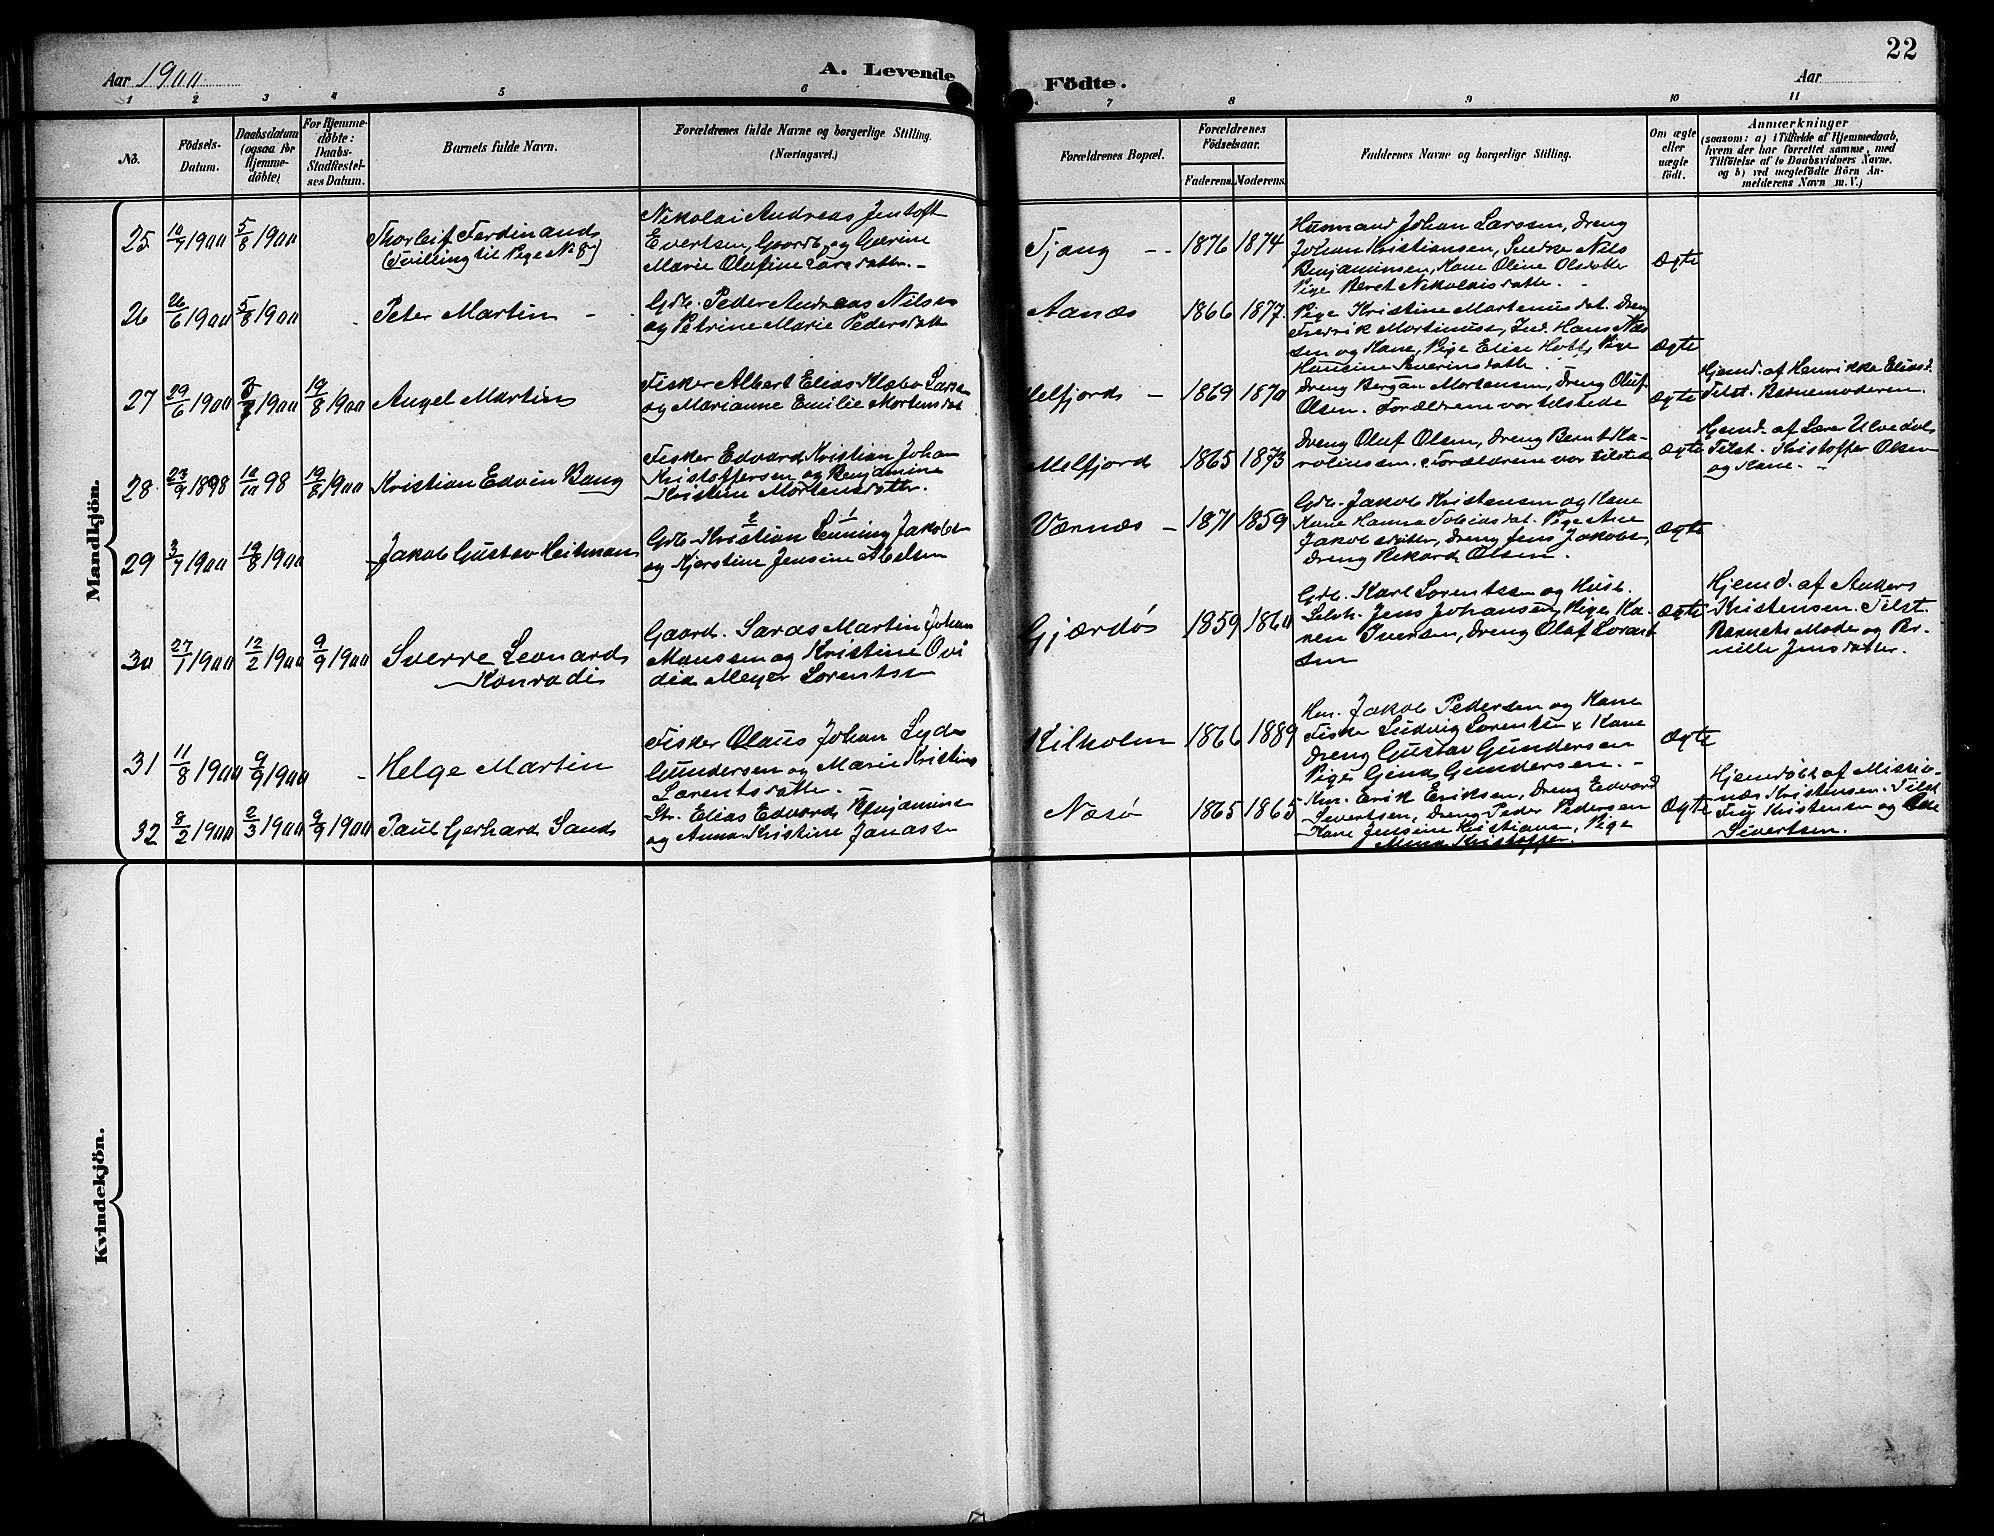 Aar 1900
A. Levende
Födte.
Aar
22
1 2 3 4 5 6 7 8 9 10 11
No.
Födsels-
Datum.
Daabsdatum
(ogsaa for
Hjemme-
döbte)
For Hjemme-
döbte:
Daabs-
Stadfestel-
ses Datum.
Barnets fulde Navn.
Forældrenes fulde Navne og borgerlige Stilling.
(Næringsvei.)
Forældrenes Bopæl.
Forældrenes
Födselsaar.
Faderens.
Moderens.
Faddernes Navne og borgerlige Stilling.
Om ægte
eller
uægte
födt.
Anmærkninger
(saasom: a) i Tilfælde af Hjemmedaab,
hvem der har forrettet samme, med
Tilföielse af to Daabsvidners Navne.
og b) ved uægtefödte Börn An-
melderens Navn m. V.)
Mandkjön.
25 10/7 1900 5/8 1900
Thorleif Ferdinand
(Tvilling til Pige No 8)
Nikolai Andreas Jentoft
Evertsen, Gaardb. og Gurine
Marie Olufine Larsdatter. -
Tjong - 1876 1874
Husmand Johan Larssen, Dreng
Johan Kristiansen, Nils
Benjaminsen, Kone Oline Olsdatter
Pige Beret Nikolaisdatter.
Ægte
26 26/6 1900 5/8 1900
Peter Martin -
Gdb. Peder Andreas Nilsen
og Petrine Marie Pedersdatter
Aanæs 1866 1877.
Pige Kristine Martenusdat. Dreng
Fredrik Mortinuss, Ind. Hans Niels
sen og Kone, Pige Elise Hoff, Pige
Hansine Severinsdatter.
Ægte
27 29/6 1900 1900 19/8 1900
Angel Martin
Fisker Albert Elias Klæbo Larsen
og Marianne Emilie Mortensdat
Melfjord - 1869 1870
Dreng Bergan Mortensen, Dreng Oluf
Olsen. Forældrene var tilstede
Ægte
Hjemd. af Henrikke Eliasd.
Tilst. Barnemoderen.
28 23/9 1898 10/10 98 19/8 1900
Kristian Edvin Bang
Fisker Edvard Kristian Johan
Kristoffersen og Benjamine
Kristine Mortensdatter.
Melfjord 1865 1873
Dreng Oluf Olsen, Dreng Bernt Ka-
rolinssen. Forældrene var tilstede
Ægte
Hjemd. af Lærer Ulvedal
Tilst. Kristoffer Olsen
og Kone. -
29 3/7 1900 19/8 1900
Jakob Gustav Heitman
Gdb. Kristian Lenning Jakobs
og Kjerstine Jensine Abelsen
Værnæs - 1871 1859
Gdb. Jakob Kristensen og Kone
Kone Hanna Tobiasdat. Pige Ane
Jakobsdatter, Dreng Jens Jakobs,
Dreng Rikard Olsen.
Ægte
30 27/1 1900 12/2 1900 9/9 1900
Sverre Leonard
Konradi
Gaard. Martin Johan
Monssen og Kristine Ovi
dia Meyer Lorentsen
Gjærdø 1859 1860
Gdb. Karl Lorentssen og Hust.
Selvh. Jens Johansen, Pige Ka-
ren Iversen, Dreng Olaf Lorent
sen
Ægte
Hjemd. af Anders
Kristensen. Tilst.
Barnets Moder og Per-
nille Jensdatter.
31 11/8 1900 9/9 1900
Helge Martin
Fisker Olaus Johan Lyder
Gundersen og Marie Kristine
Lorentsdatter. -
Kilholm 1866 1889
Hm. Jakob Pedersen og Kone
Fisker Ludvig Lorentsen & Kone
Dreng Gustav Gundersen
Pige Gjenda Gundersen. -
Ægte
32 8/2 1900 2/3 1900 9/9 1900
Paul Gerhard Sand
Str. Elias Edvard Benjamine
og Anna Kristine Jonassen
Næsø 1865 1865
Km. Erik Eriksen, Dreng Edvard
Sivertsen, Dreng Peder Pedersen
Kone Jensine Kristians, Pige
Mina Kristoffer.
Ægte
Hjemdøbt af Missio-
næs Kristensen. Tilst
Fru Kristensen og
Sivertsen.
Kvindekjön.